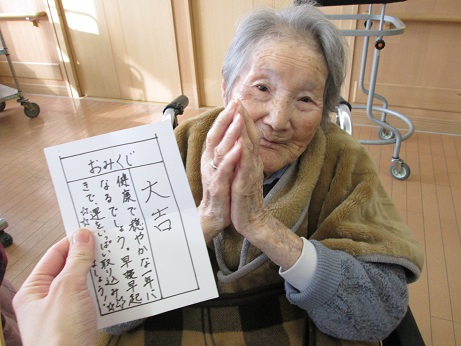 おみくじ
大吉
健康で穏やかな一年に
なるでしょう。早寝早起
きで、運をいっぱい取り込み
ましょう!